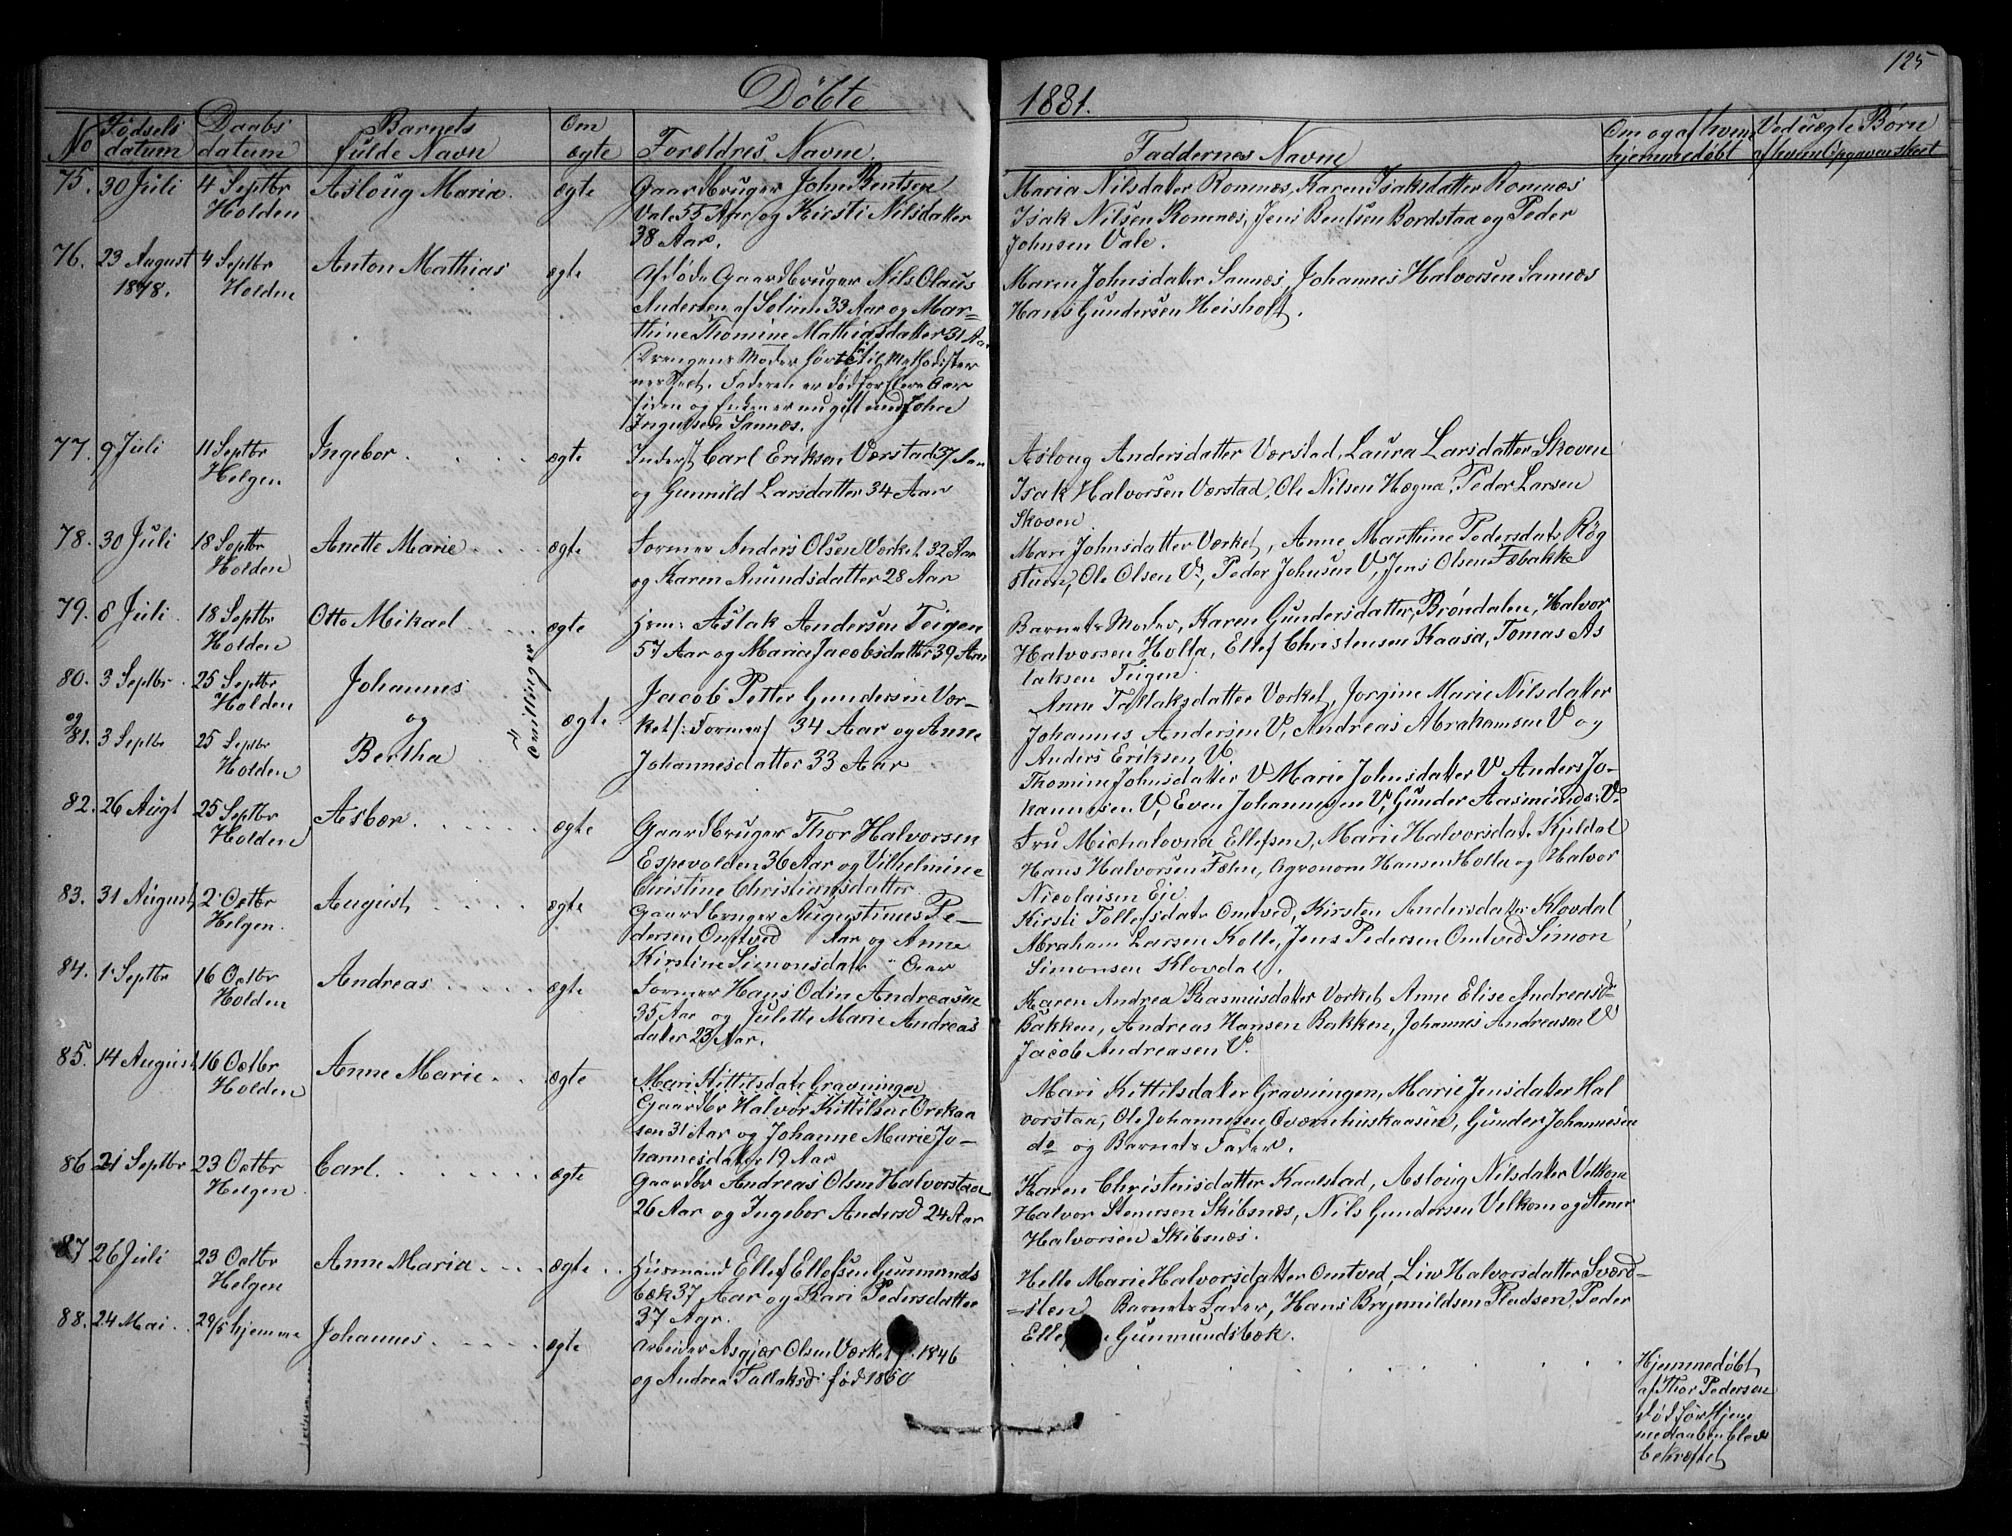 125
Döbte
1881.
No
Födsels datum
Daabs datum
Barnets fulde Navn
Om ægte
Forældres Navne
Faddernes Navne
Om og af hvem hjemmedöbt
Ved uægte Börn af hvem Opgaven skeet
75. 30 Juli
4 Septbr Holden
Asloug Maria.
ægte
Gaardbruger John Bentsen
Vale 55 Aar og Kirsti Nilsdatter
38 Aar.
Maria Nilsdatter Romnæs, Karen Isaksdatter Romnæs
Isak Nilsen Romnæs, Jens Bentsen Bordstaa og Peder
Johnsen Vale.
76. 23 August 1878.
4 Septbr Holden
Anton Mathias
ægte
Afdøde Gaardbruger Nils Olaus
Andersen af Solum 33 Aar og Mar-
thine Thomine Mathiasdatter 31 Aar
Drengens Moder hørte til Methodister
nes Sect. Faderen er död for flere Aar
siden og Enken er nu gift med John
Ingulsen Sannæs.
Maren Johnsdatter Sannæs, Johannes Halvorsen Sannæs
Hans Gundersen Heisholt.
77. 9 Juli
11 Septbr Helgen
Ingebor
ægte
Inderst Carl Eriksen Værstad 37 Aar
og Gunnild Larsdatter 34 Aar
Asloug Andersdatter Værstad, Laura Larsdatter Skoven
Isak Halvorsen Værstad, Ole Nilsen Hægna, Peder Larsen
Skoven
78. 30 Juli
18 Septbr Holden
Anette Marie
ægte
Former Anders Olsen Værket 32 Aar
og Karen Amundsdatter 28 Aar
Mari Johnsdatter Værket, Anne Marthine Pedersdatr Røg
stuen, Ole Olsen V., Peder Johnsen V, Jens Olsen Fæbakke
79. 8 Juli
18 Septbr Holden
Otto Mikael
ægte
Hrm: Aslak Andersen Teigen
57 Aar og Maria Jacobsdatter 39 Aar
Barnets Moder, Karen Gundersdatter, Brøndalen, Halvor
Halvorsen Holla, Ellef Christensen Kaasa, Tomas As
laksen Teigen
80. 3 Septbr
25 Septbr Holden
Johannes
og
og 81. 3 Septbr
25 Septbr Holden
Bertha
Tvillinger
ægte
Jacob Petter Gundersen Vær-
ket /: Former / 34 Aar og Anne
Johannesdatter 33 Aar
Anne Tallaksdatter Værket, Jorgine Marie Nilsdatter
Johannes Andersen V, Andreas Abrahamsen V og
Anders Eriksen V.
Thomine Johnsdatter V Marie Johnsdatter V Anders Jo-
hannesen V, Even Johannesen V, Gunder Aasmunds: V.
82. 26 Augt
25 Septbr Holden
Asbær
ægte
Gaardbruger Thor Halvorsen
Espevolden 36 Aar og Vilhelmine
Christine Christiansdatter
Fru Michalovna Ellefsen, Marie Halvorsdatr Kjeldal
Hans Halvorsen Fæhn, Agronom Hansen Holla og Halvor
Nicolaisen Eie
83. 31 August
2 Octbr Helgen.
August
ægte
Gaardbruger Augustinus Pe-
dersen Omtved Aar og Anne
Kirstine Simonsdatr " Aar
Kirsti Tollefsdatr Omtved, Kirsten Andersdatter Klovdal
Abraham Larsen Kolle, Jens Pedersen Omtved Simon
Simonsen Klovdal.
84. 1 Septbr
16 Octbr Holden
Andreas
ægte
Former Hans Odin Andreasen
35 Aar og Julette Marie Andreas
datter 23 Aar.
Karen Andrea Rasmusdatter Værket, Anne Elise Andreasdr
Bakken, Andreas Hansen Bakken, Johannes Andreasen V
Jacob Andreasen V.
85. 14 August
16 Octbr Holden
Anne Marie
ægte
Mari Kittilsdatr Gravningen
Gaardbr Halvor Kittilsen Orekaa
sen 31 Aar og Johanne Marie Jo-
hannesdatter 19 Aar
Mari Kittilsdatter Gravningen, Marie Jensdatter Hal
vorstaa, Ole Johannesen Oværnhuskaasen, Gunder Johannesen
do og Barnets Fader.
86 21 Septbr
23 Octbr Helgen
Carl.
ægte
Gaardbr Andreas Olsen Halvorstaa
26 Aar og Ingebor Andersd 24 Aar
Karen Christensdatter Kaalstad, Asloug Nilsdatter Velkom
Halvor Stenersen Skibsnæs, Nils Gundersen Velkom og Stener
Halvorsen Skibsnæs.
87 26 Juli
23 Octbr Helgen
Anne Maria
ægte
Husmand Ellef Ellefsen Gunmunds
bæk 37 Aar og Kari Pedersdatter
37 Aar.
Helle Marie Halvorsdatter Omtved, Liv Halvorsdatter Sværd-
sten Barnets Fader, Hans Brynnildsen Pladsen, Peder
Gunmundsbæk.
88. 24 Mai
29/5 hjemme
Johannes
ægte
Arbeider Asgjær Olsen Værket f. 1846
og Andrea Tallaksd: född 1850
Hjemmedöbt
af Thor Pedersen
död før Hjem
medaaben blev
bekræftet